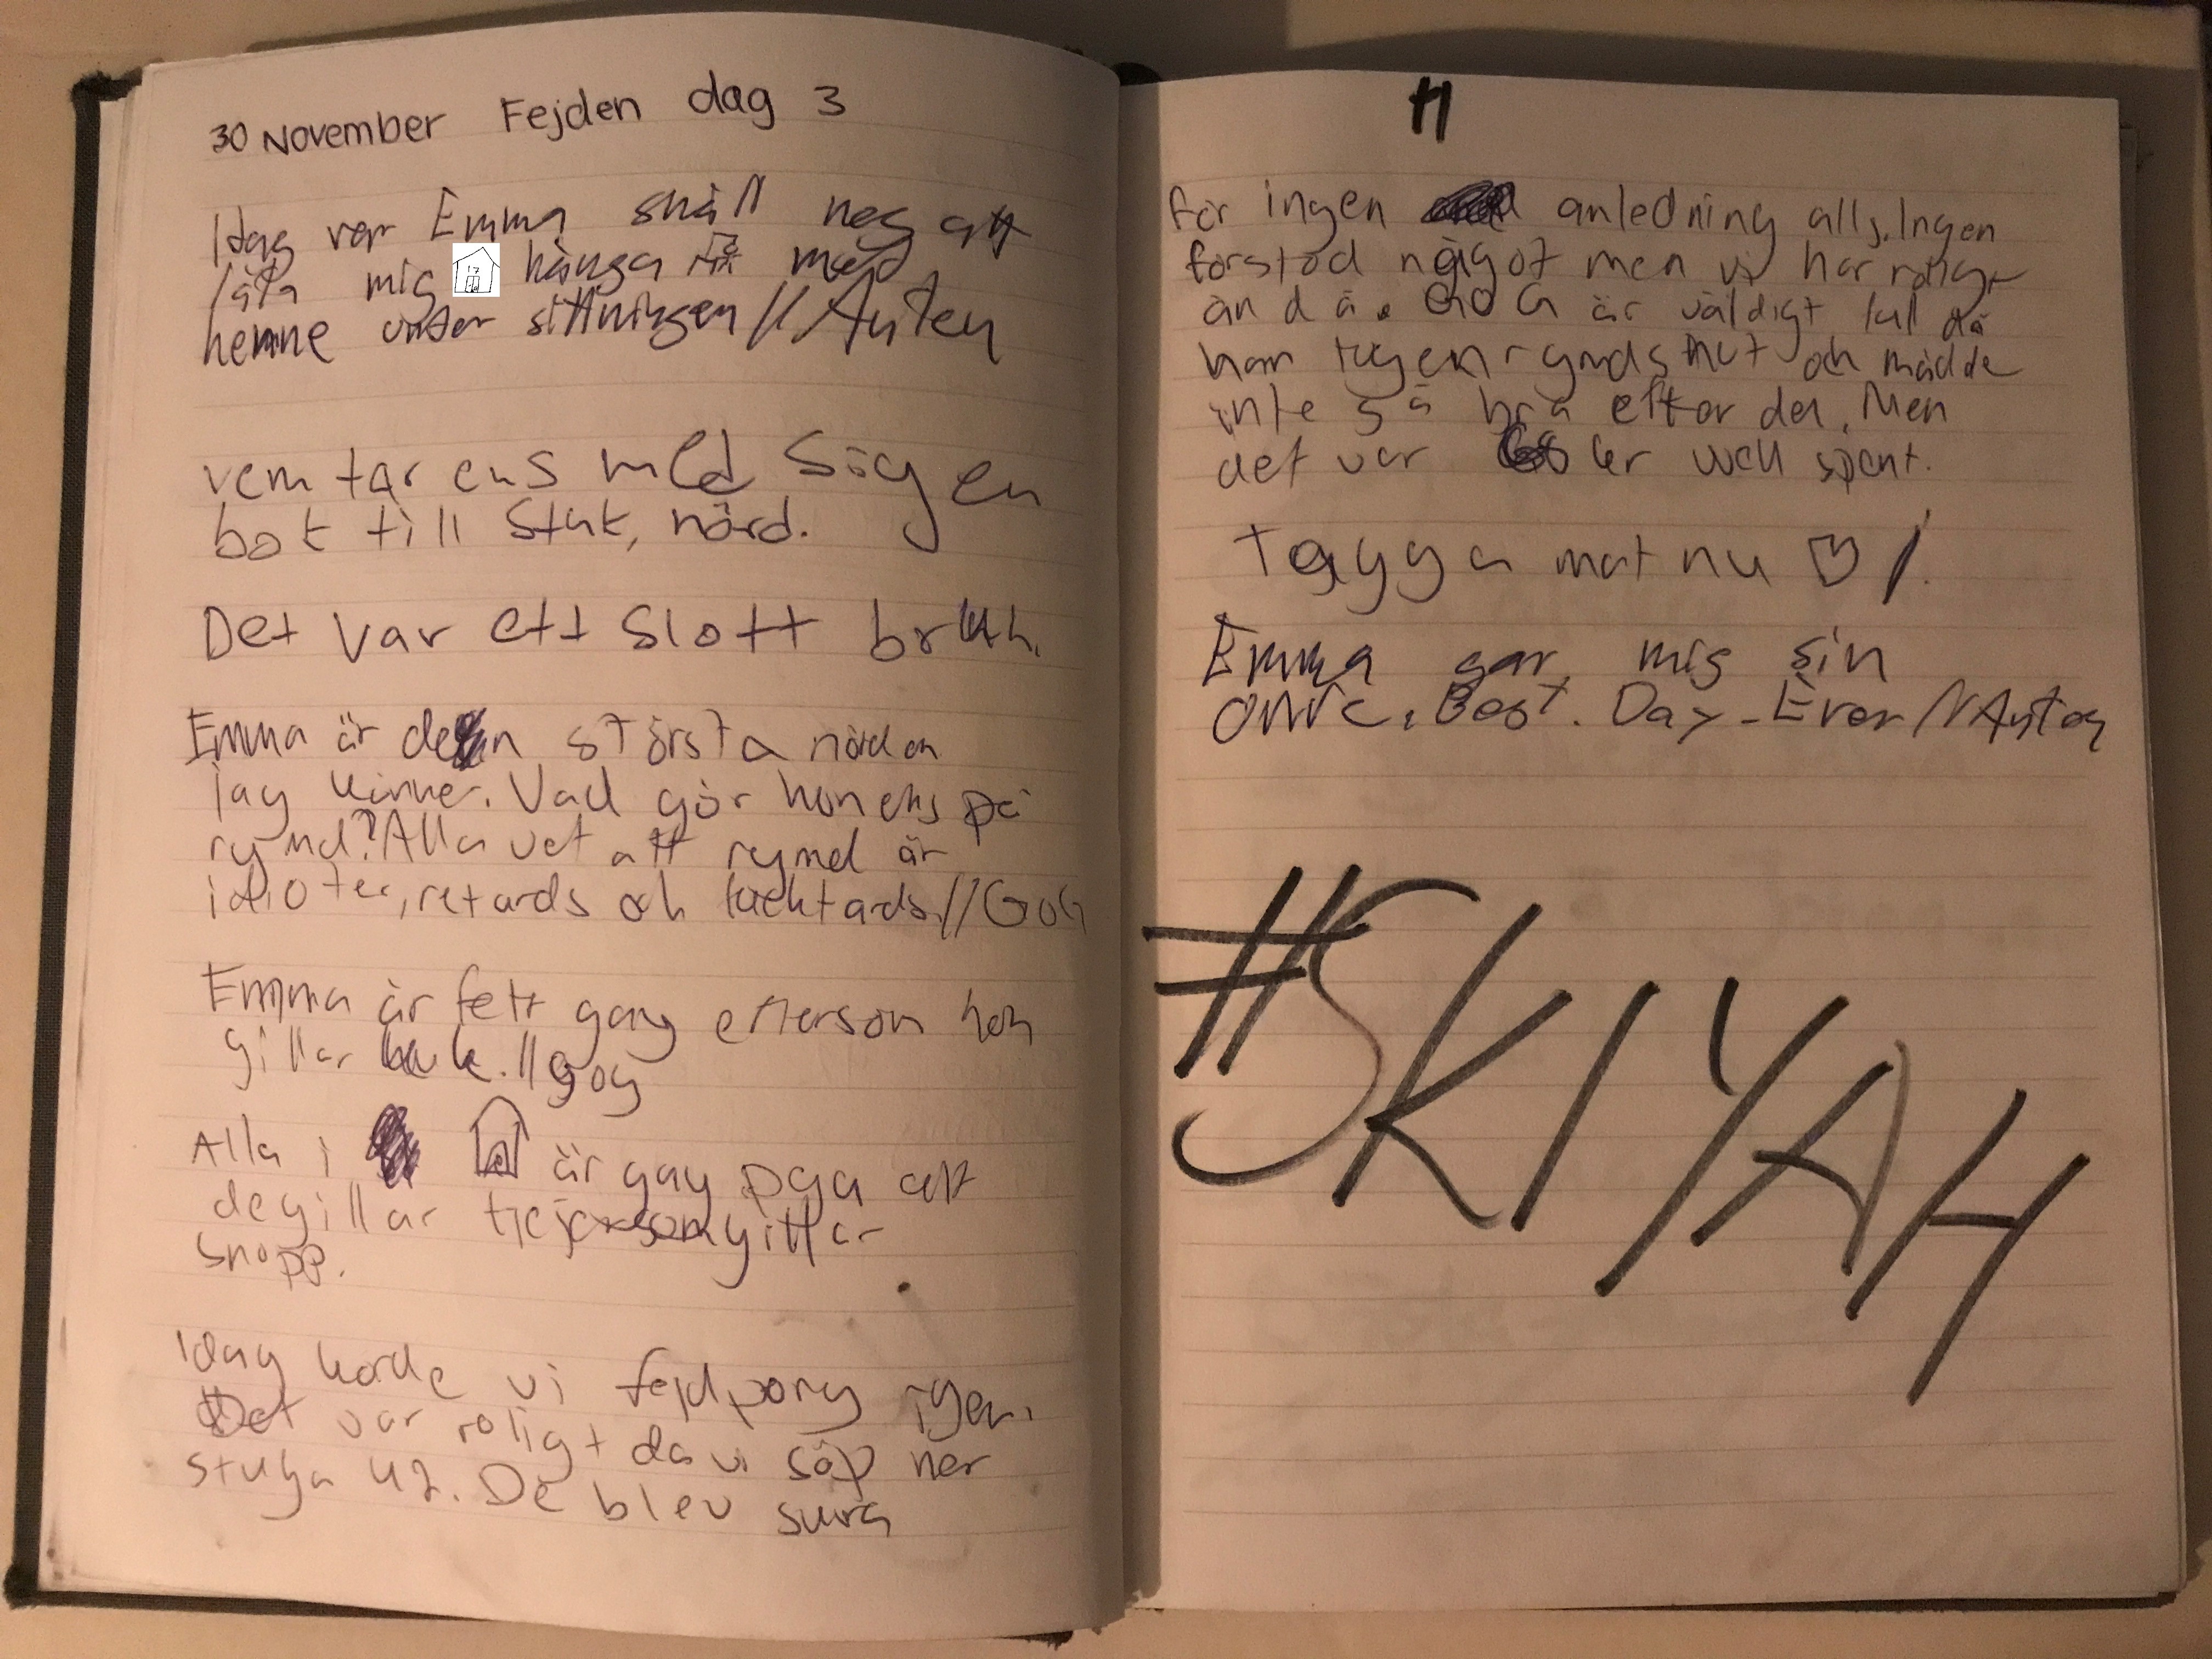 30 November Fejden dag 3
Idag var Emma snäll nog att
låta mig hänga med
henne under sittningen // Anton
vem tar ens med sig en
bok till Stuk, nörd.
Det var ett slott bruh.
Emma är den största nörden
jag känner. Vad gör hon ens på
rymd? Alla vet att rymd är
idioter, retards och fucktards // GOG
Emma är fett gay efterson hon
gillar kuk. // gog
Alla i är gay pga att
de gillar tjejer som gillar
snopp.
Idag körde vi fejdpong igen.
Det var roligt då vi söp ner
stuga 42. De blev sura
för ingen anledning alls. Ingen
förstod något men vi har roligt
ändå. GOG är väldigt full då
han och mådde
inte så bra efter det. Men
det var well spent.
Tagga mat nu ♡ /.
Emma gav mig sin
Best. Day. Ever // Anton
#SKIYAH